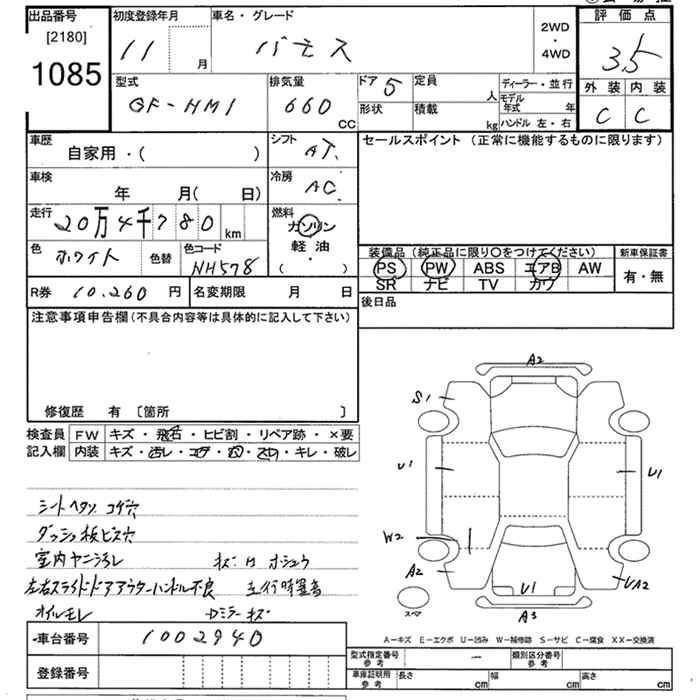 出品番号 初度登録年月 車名・グレード 評価点
[2180] 11 月 バモス 2WD・4WD 3.5
1085 型式 排気量 ドア 5 定員 人 ディーラー・並行 外装 内装
GF-HM1 660 CC 形状 積載 kg モデル年式 年 C C
ハンドル 左・右
車歴 自家用・( ) シフト AT セールスポイント (正常に機能するものに限ります)
車検 年 月( 日) 冷房 AC
走行 20万4千780 km 燃料 ガソリン
軽油
・( )
色 ホワイト 色替 色コード NH578 装備品 (純正品に限り○をつけてください) 新車保証書
PS PW ABS エアB AW 有・無
SR ナビ TV カワ
R券 10,260 円 名変期限 月 日 後日品
注意事項申告欄(不具合内容等は具体的に記入して下さい)
修復歴 有 [箇所 ]
検査員 FW キズ・飛石・ヒビ割・リペア跡・×要
記入欄 内装 キズ・汚レ・コゲ・穴・スレ・キレ・破レ
A2
S1
U1 U1
W2
A2 UA2
U1
スペア A3
シートヘタリ コゲ穴
ダッシュ板ビス穴
室内ヤニ汚レ キズ ホシュウ
左右スライドドアアウターハンドル不良 走行時異音
オイルモレ Dミラーキズ
車台番号 1002940
登録番号
A-キズ E-エクボ U-凹み W-補修跡 S-サビ C-腐食 XX-交換済
型式指定番号 参考 - 類別区分番号 参考
車庫証明用 参考 長さ cm 幅 cm 高さ cm